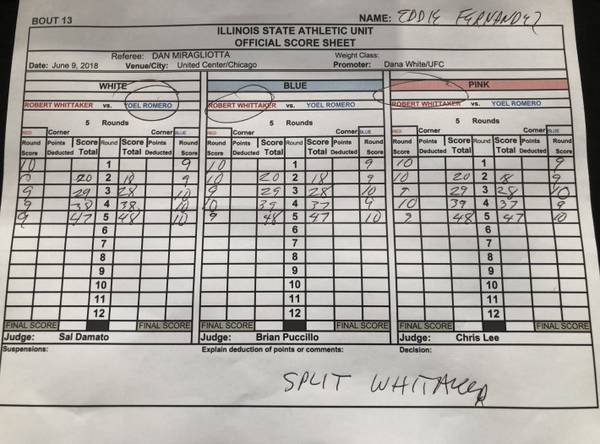 BOUT 13 NAME: EDDIE FERNANDEZ
ILLINOIS STATE ATHLETIC UNIT
OFFICIAL SCORE SHEET
Referee: DAN MIRAGLIOTTA Weight Class:
Date: June 9, 2018 Venue/City: United Center/Chicago Promoter: Dana White/UFC
WHITE BLUE PINK
ROBERT WHITTAKER vs. YOEL ROMERO ROBERT WHITTAKER vs. YOEL ROMERO ROBERT WHITTAKER vs. YOEL ROMERO
5 Rounds 5 Rounds 5 Rounds
RED Corner Corner BLUE RED Corner Corner BLUE RED Corner Corner BLUE
Round Points Score Round Score Points Round Round Points Score Round Score Points Round Round Points Score Round Score Points Round
Score Deducted Total Total Deducted Score Score Deducted Total Total Deducted Score Score Deducted Total Total Deducted Score
10 1 9 10 1 9 10 1 9
20 2 18 9 10 20 2 18 9 10 20 2 18 9
9 29 3 28 10 9 29 3 28 10 29 3 28 10
9 38 4 38 10 10 39 4 37 9 10 39 4 37 9
9 47 5 48 10 9 48 5 47 10 9 48 5 47 10
6 6 6
7 7 7
8 8 8
9 9 9
10 10 10
11 11 11
12 12 12
FINAL SCORE FINAL SCORE FINAL SCORE FINAL SCORE FINAL SCORE FINAL SCORE
Judge: Sal Damato Judge: Brian Puccillo Judge: Chris Lee
Suspensions: Explain deduction of points or comments: Decision:
SPLIT WHITAKER